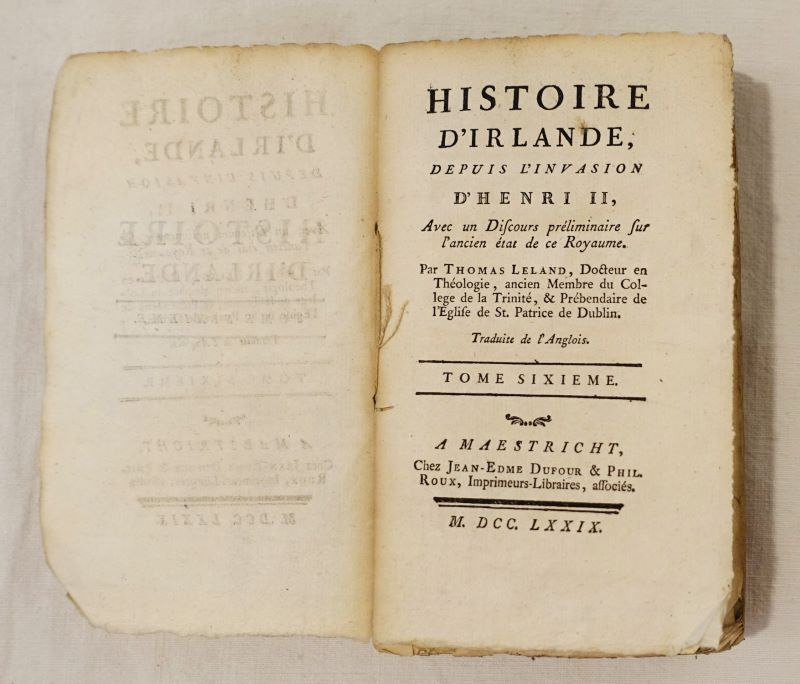 HISTOIRE
D'IRLANDE,
DEPUIS L'INVASION
D'HENRI II,
Avec un Diſcours préliminaire ſur
l'ancien état de ce Royaume.
Par THOMAS LELAND, Docteur en
Théologie, ancien Membre du Col-
lege de la Trinité, & Prébendaire de
l'Egliſe de St. Patrice de Dublin.
Traduite de l'Anglois.
TOME SIXIEME.
A MAESTRICHT,
Chez JEAN-EDME DUFOUR & PHIL.
ROUX, Imprimeurs-Libraires, aſſociés.
M. DCC. LXXIX.